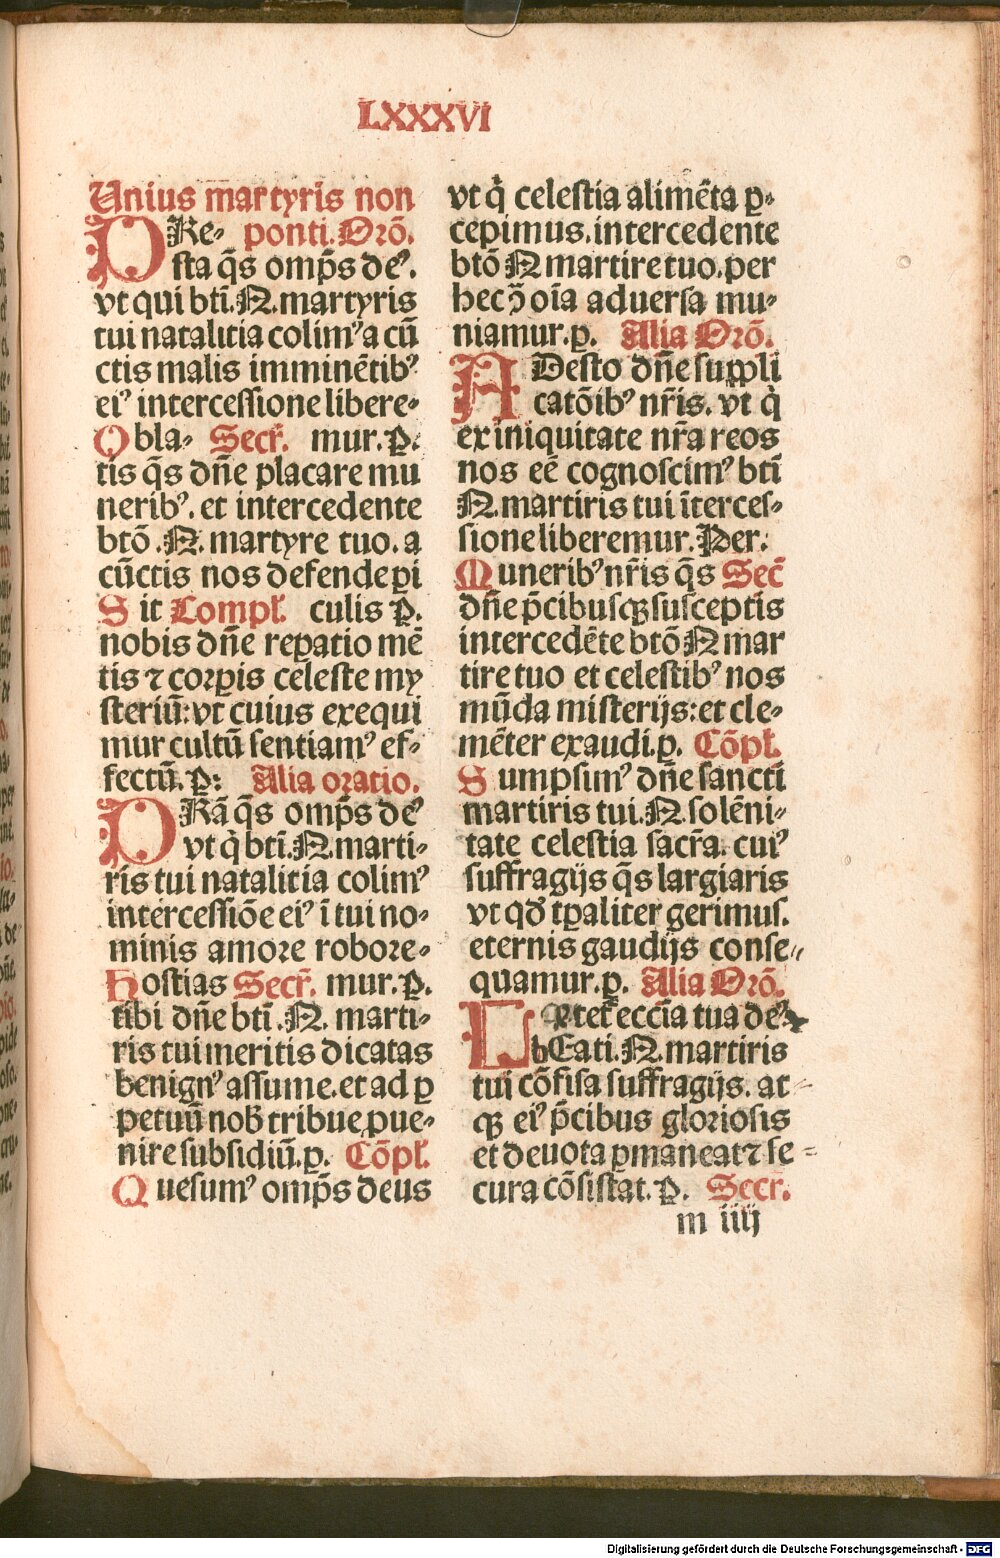 LXXXVI
Unius martyris non
PRe- ponti. Orō.
sta q̄s omp̄s deꝰ.
vt qui btī. N. martyris
tui natalitia colimꝰ a cū
ctis malis imminētibꝰ
eiꝰ intercessione libere-
Obla- Secr̄. mur. p̱.
tis q̄s dn̄e placare mu
neribꝰ. et intercedente
btō. N. martyre tuo. a
cūctis nos defende ꝑi
Sit Compl̄. culis p̱.
nobis dn̄e reꝑatio mē
tis ⁊ corꝑis celeste my
steriū: vt cuius exequi
mur cultū sentiamꝰ ef-
fectū. p̱: Alia oratio.
PRā q̄s omp̄s deꝰ
vt q̇ btī. N. marti-
ris tui natalitia colimꝰ
intercessiōe eiꝰ ī tui no-
minis amore robore-
Hostias Secr̄. mur. p̱.
tibi dn̄e btī. N. marti-
ris tui meritis dicatas
benignꝰ assume. et ad ꝑ
petuū nob̄ tribue ꝓue-
nire subsidiū. p̱. Cōpl̄.
Quesumꝰ omp̄s deus
vt q̇ celestia alimēta ꝑ-
cepimus. intercedente
btō N martire tuo. per
hec ꝯ oīa aduersa mu-
niamur. p̱. Alia Orō.
ADesto dn̄e suppli
catōibꝰ nr̄is. vt q̇
ex iniquitate nr̄a reos
nos eē cognoscimꝰ btī
N. martiris tui īterces-
sione liberemur. Per.
Muneribꝰ nr̄is q̄s Sec̄
dn̄e p̄cibusqꝫ susceptis
intercedēte btō N mar
tire tuo et celestibꝰ nos
mūda misterijs: et cle-
mēter exaudi. p̱. Cōpl̄.
Sumpsimꝰ dn̄e sancti
martiris tui. N. solēni-
tate celestia sacr̄a. cuiꝰ
suffragijs q̄s largiaris
vt qđ tꝑaliter gerimus.
eternis gaudijs conse-
quamur. p̱. Alia Orō.
Letet̄ eccīa tua deꝰ
bEati. N. martiris
tui cōfisa suffragijs. at-
qꝫ eiꝰ p̄cibus gloriosis
et deuota ꝑmaneat ⁊ se-
cura cōsistat. p̱. Secr̄.
m iiij
Digitalisierung gefördert durch die Deutsche Forschungsgemeinschaft - DFG